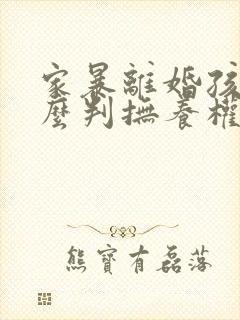 家暴離婚孩
麼判撫養權
熊寶有磊落